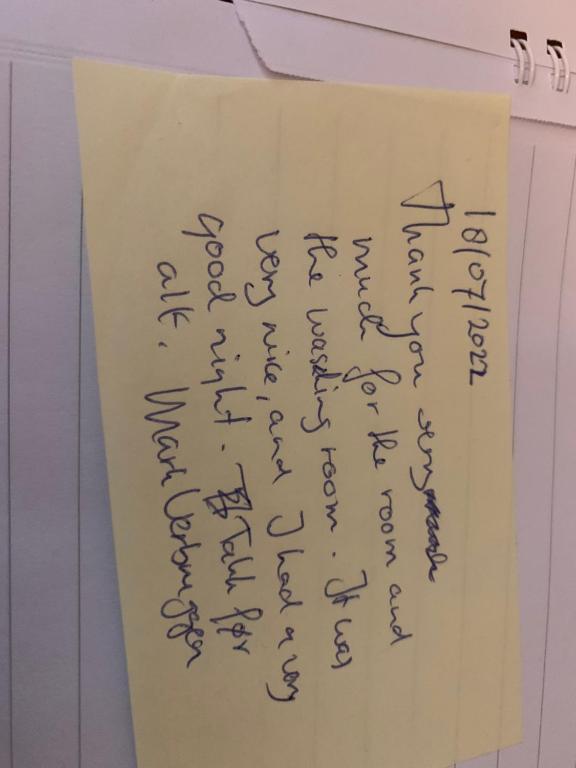 18/07/2022
Thank you very
much for the room and
the wasding room. It was
very nice, and I had a very
good night. Takk før
alt. Mark Verbruggen